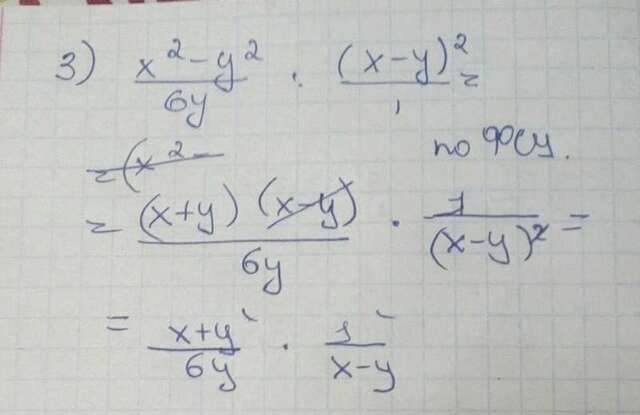 3) (x² - y²)/(6y) · (x-y)²/1 =
= (x² -
по ФСУ.
= ((x+y)(x-y))/(6y) · 1/(x-y)² =
= (x+y)/(6y) · 1/(x-y)